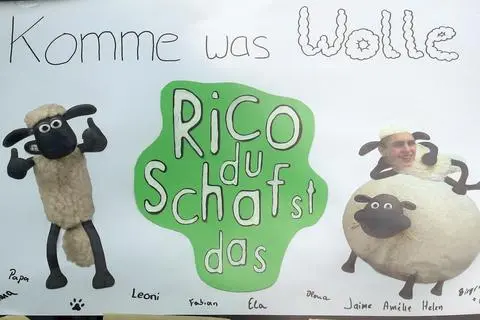 Komme was Wolle
Rico
du
Schafst
das
Papa
Leoni
Fabian
Ela
Jaime Amélie Helen